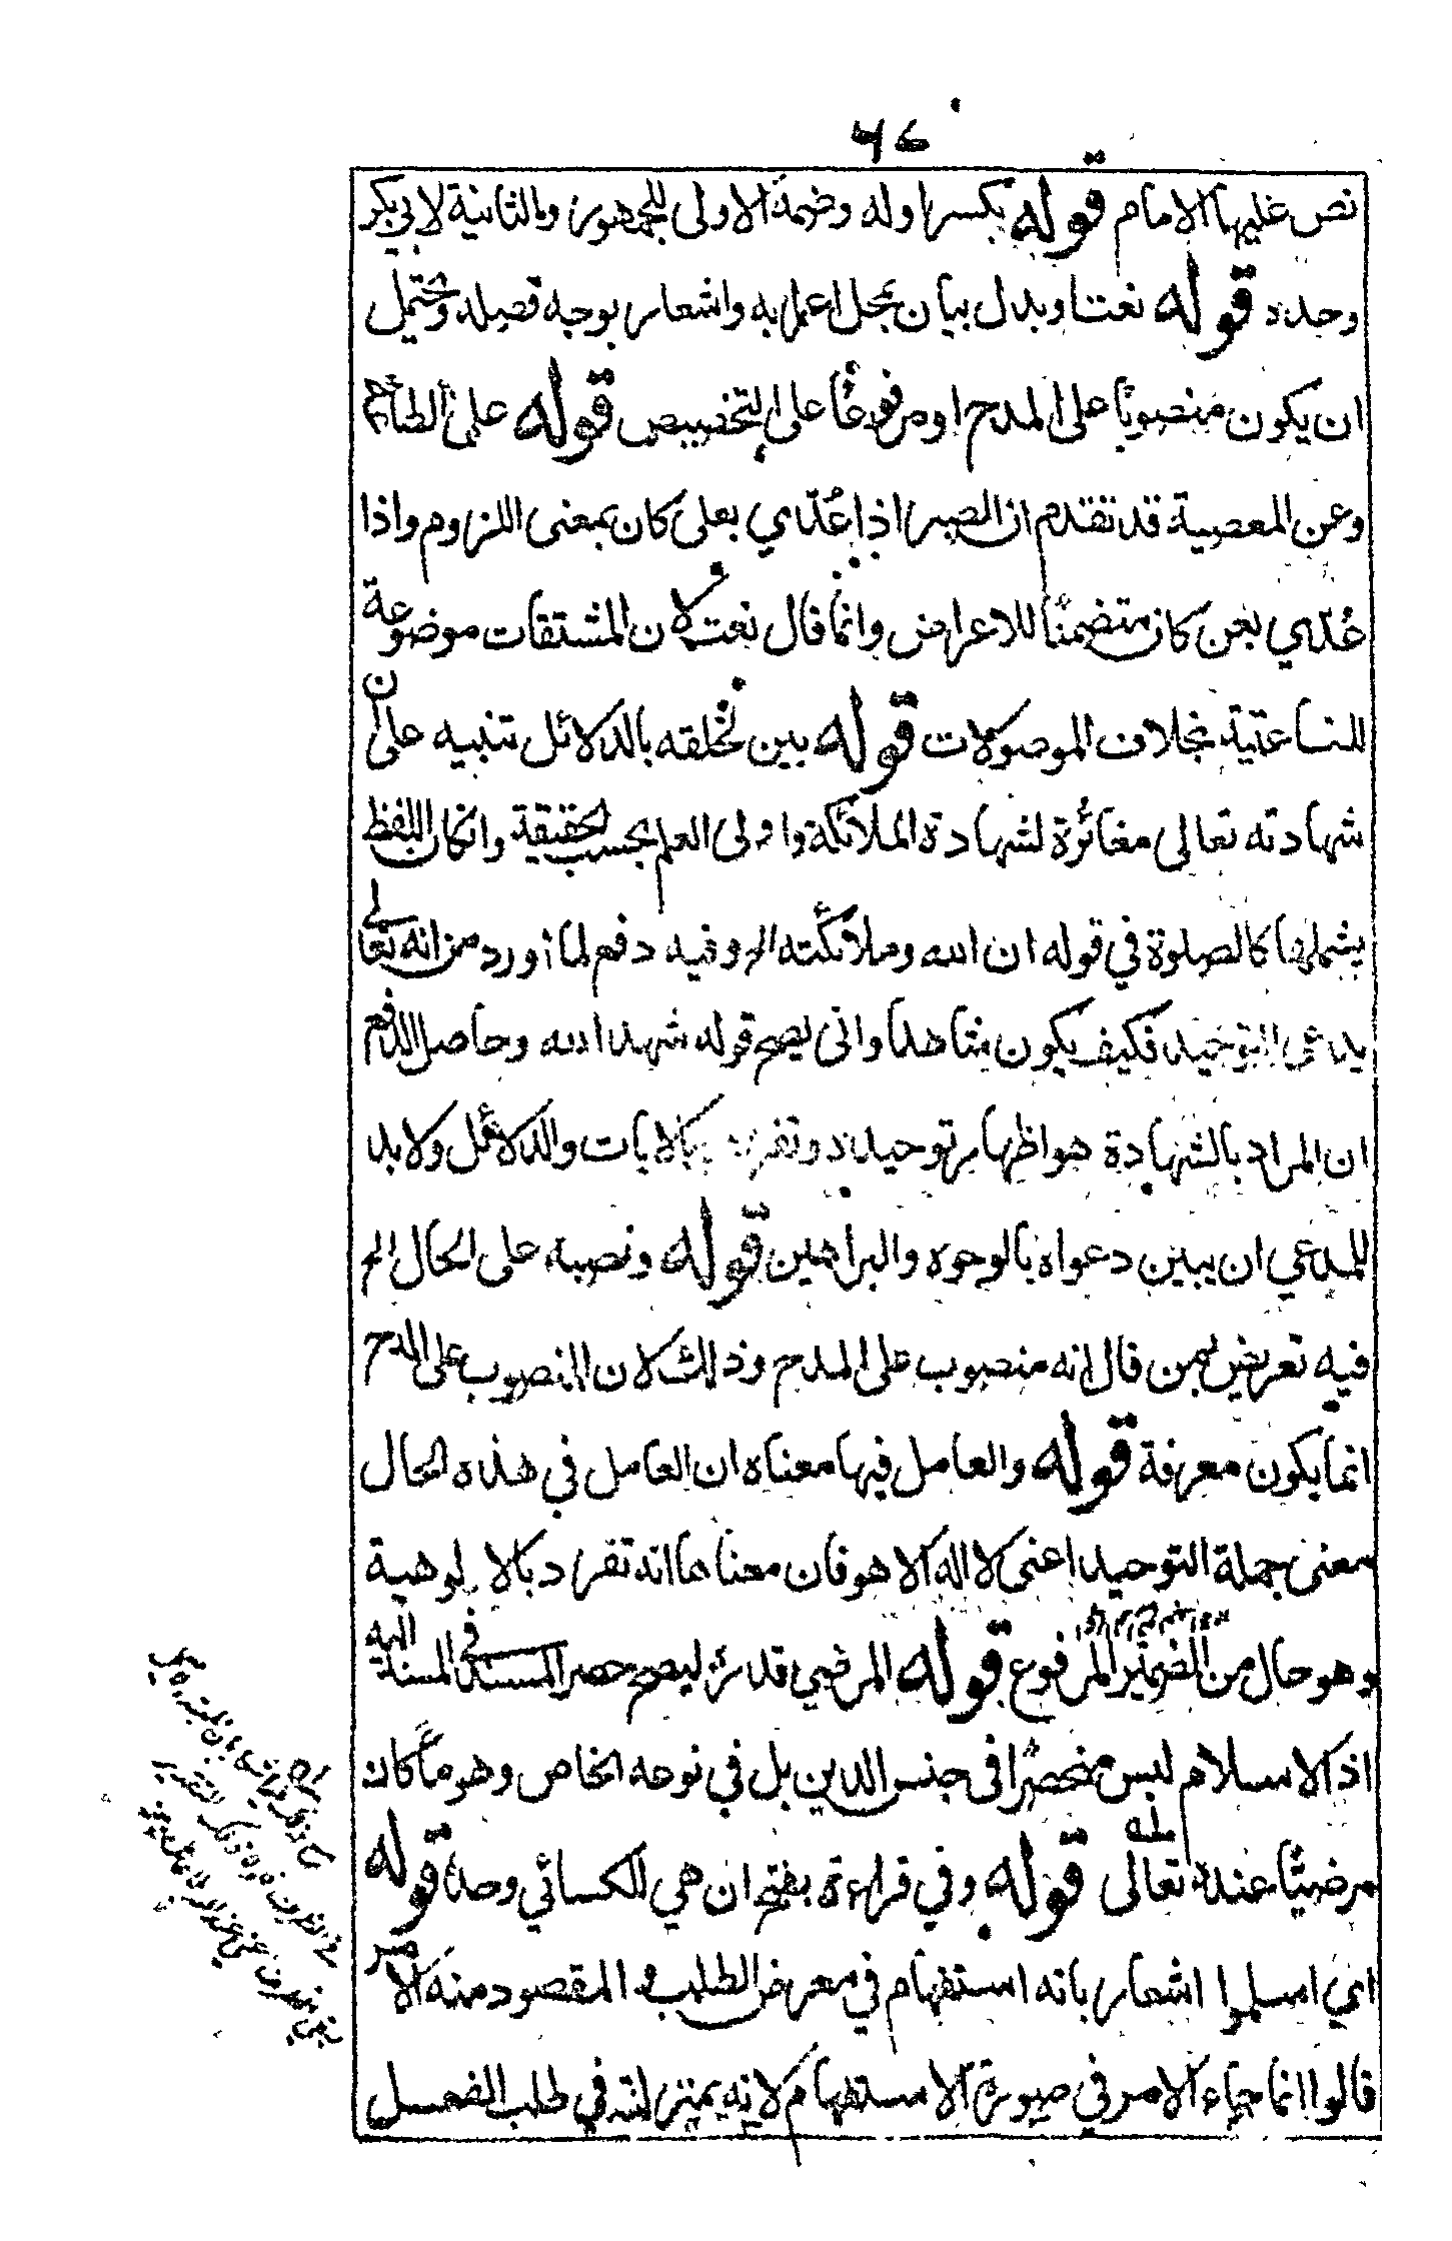 ٦٤
نص عليها الامام قوله بكسر اوله وضمه الاولى للجمهور وبالثانية لابي بكر
وحده قوله نعت او بدل بيان لمحل اعرابه واشعار بوجه فصيله ويحتمل
ان يكون منصوبًا على المدح او مرفوعًا على التخصيص قوله على الطاعة
وعن المعصية قد تقدم ان الصبر اذا عُدّي بعلى كان بمعنى اللزوم واذا
عُدّي بعن كان متضمنًا للاعراض وانما قال نعت لان المشتقات موضوعة
للناعتية بخلاف الموصولات قوله بين لخلقه بالدلائل تنبيه على ان
شهادته تعالى مغائرة لشهادة الملائكة واولى العلم بحسب الحقيقة وانكان اللفظ
يشملها كالصلوة في قوله ان الله وملائكته الخ وفيه دفع لما اورد من انه تعالى
يدعى التوحيد فكيف يكون شاهدا وانى يصح قوله شهد الله وحاصل الدفع
ان المراد بالشهادة هو اظهار توحيده وتفرده بالايات والدلائل ولا بد
للمدعي ان يبين دعواه بالوجوه والبراهين قوله ونصبه على الحال الخ
فيه تعريض لمن قال انه منصوب على المدح وذلك لان المنصوب على المدح
انما يكون معرفة قوله والعامل فيها معناه ان العامل في هذه الحال
معنى جملة التوحيد اعنى لا اله الا هو فان معناها انه تفرد بالالوهية
وهو حال من الضمير المرفوع قوله المرضي قدره ليصح حصر المسند في المسند اليه
اذ الاسلام ليس منحصرًا فى جنس الدين بل في نوعه الخاص وهو ما كان
مرضيًا عنده تعالى قوله وفي قراءة بفتح ان هي للكسائي وحده قوله
اي اسلموا اشعار بانه استفهام في معرض الطلب و المقصود منه الامر
قالوا انما جاء الامر في صورة الاستفهام لانه بمنزلته في طلب الفعل